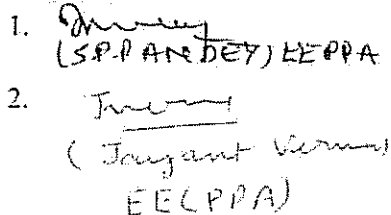 1.
(S.P.PANDEY) EEPPA
2.
(Jaygant Verma)
EE(PPA)